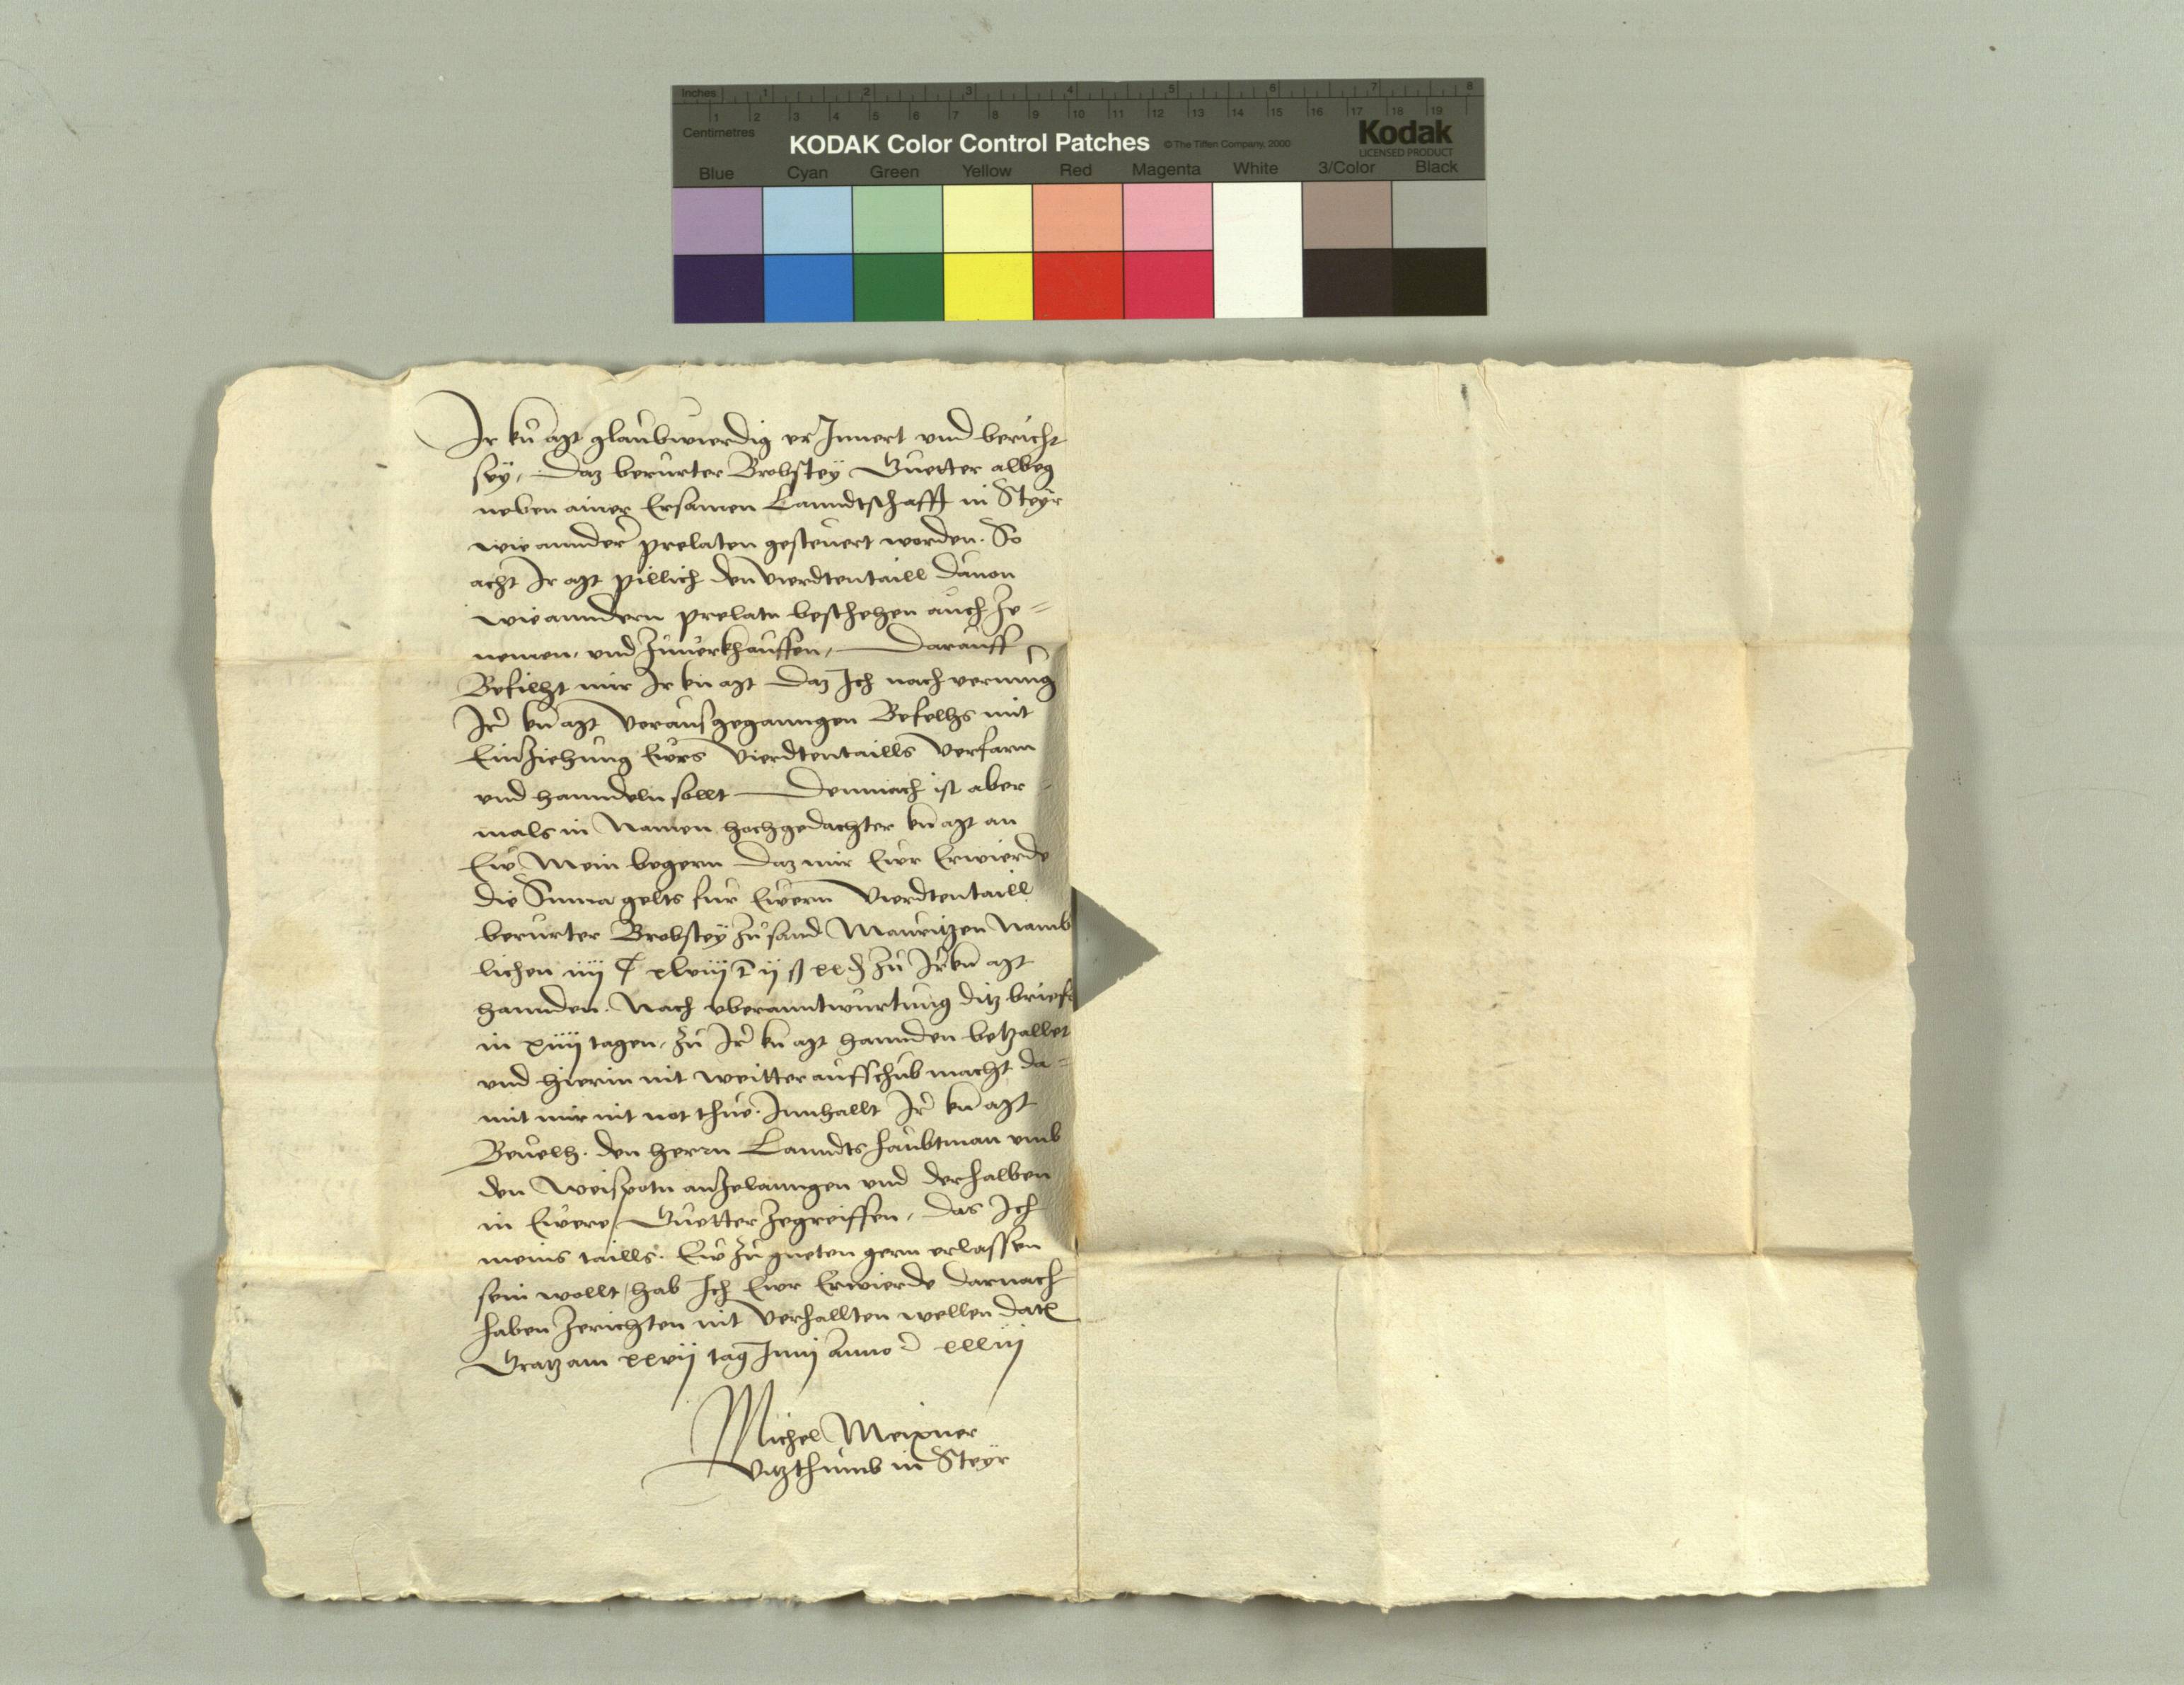 Inches 1 2 3 4 5 6 7 8
1 2 3 4 5 6 7 8 9 10 11 12 13 14 15 16 17 18 19
Centimetres
KODAK Color Control Patches © The Tiffen Company, 2000 Kodak
LICENSED PRODUCT
Blue Cyan Green Yellow Red Magenta White 3/Color Black
Ir kü mt glaubwierdig er Innert vnd bericht
sey, Daz berurter Brobstey Guetter albeg
neben ainer Ersamen Lanndtschafft in Steyr
wie annder prelaten gesteuert worden. So
acht Ir mt pillich den vierdtentaill dauon
wie anndern prelatn beschehen auch ze=
nemen, vnd zuuerkhauffen, Darauff
Befilht mir Ir kü mt Daz Ich nach vermug
Irer kü mt vorausgeganngen Befelhs mit
Einziehung Ewrs Vierdtentaills verfarn
vnd hanndeln sollt Demnach ist aber
mals in Namen hochgedachter kü mt an
Ew Mein begern Daz mir Ewr Erwierde
die Suma gelts fur Ewern Vierdtentaill
berurter Brobstey zu sand Mauritzen Namb
lichen iiij C xlviij ß xx zu Irer kü mt
hannden. Nach vberanntwurtung ditz briefs
in xiiij tagen, zu Irer kü mt hannden betzallet
vnd hierin nit weitter aufschub macht da=
mit mir nit not thue. Innhallt Irer kü mt
Beuelh. den herrn Lanndtshaubtman vmb
den Weispotn anzelanngen vnd derhalben
in Ewere Guetter zegreiffen, Das Ich
meins taills. Ew zu gueten gern erlassen
sein wollt, hab Ich Ewr Erwierde darnach
haben zerichten nit verhallten wellen dat
Gratz am xxvij tag Junij Anno xxxiij
Michel Meixner
Vitzthumb in Steyr